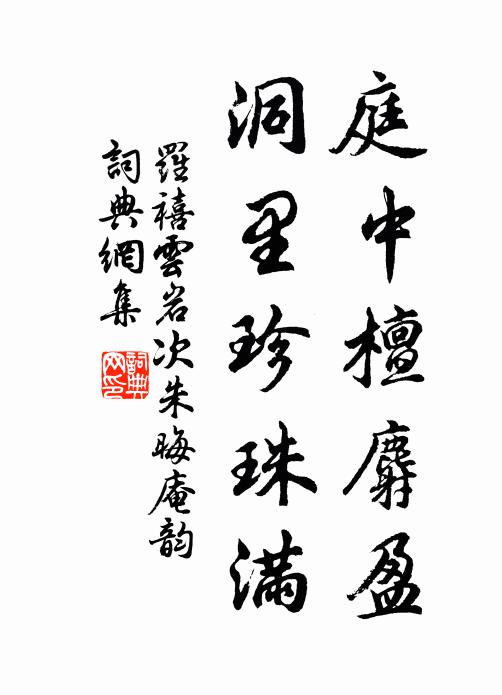 庭中檀麝盈
洞里珍珠滿
羅禧雲岩次朱晦庵韵
詞典網集
詞典网印